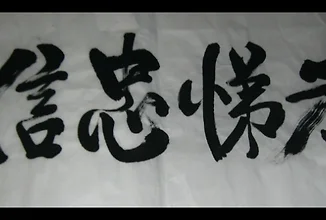 悌忠信